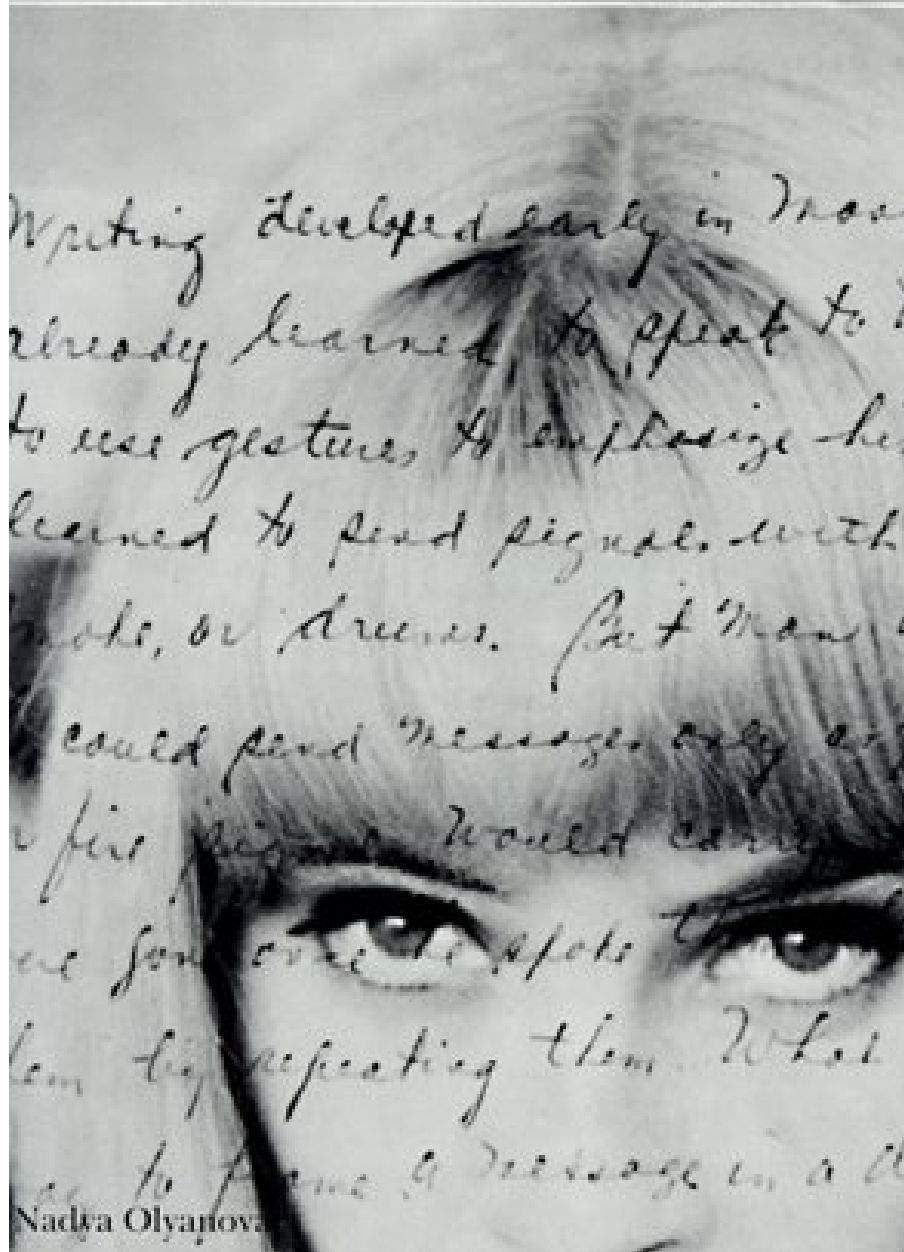 Writing developed early in Man
already learned to speak to
to use gestures to emphasize his
learned to send signals with
smoke, or drums. But Man
could send messages only
fire signals would carry
gone once he spoke
them by repeating them. What
to frame a message in a
Nadya Olyanova